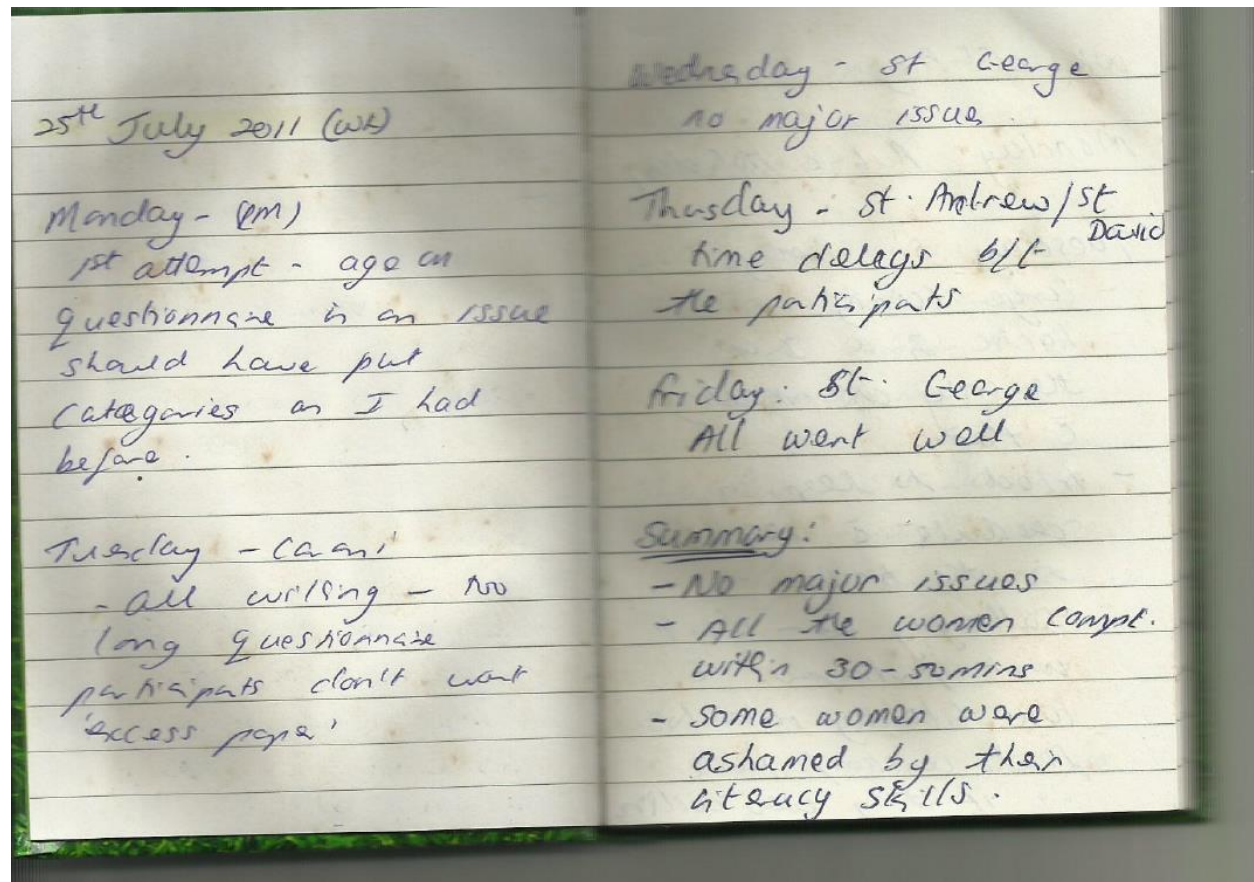 25th July 2011 (wk)
Monday - (pm)
1st attempt - age on
questionnaire is an issue
should have put
categories as I had
before.
Tuesday - Carani
- all willing - too
long questionnaire
participants don't want
'excess paper'
Wednesday - St George
no major issue.
Thusday - St. Andrew/St
David
time delays b/t
the participants
Friday: St. George
All went well
Summary:
- No major issues
- All the women compt.
within 30-50mins
- Some women were
ashamed by their
literacy skills.